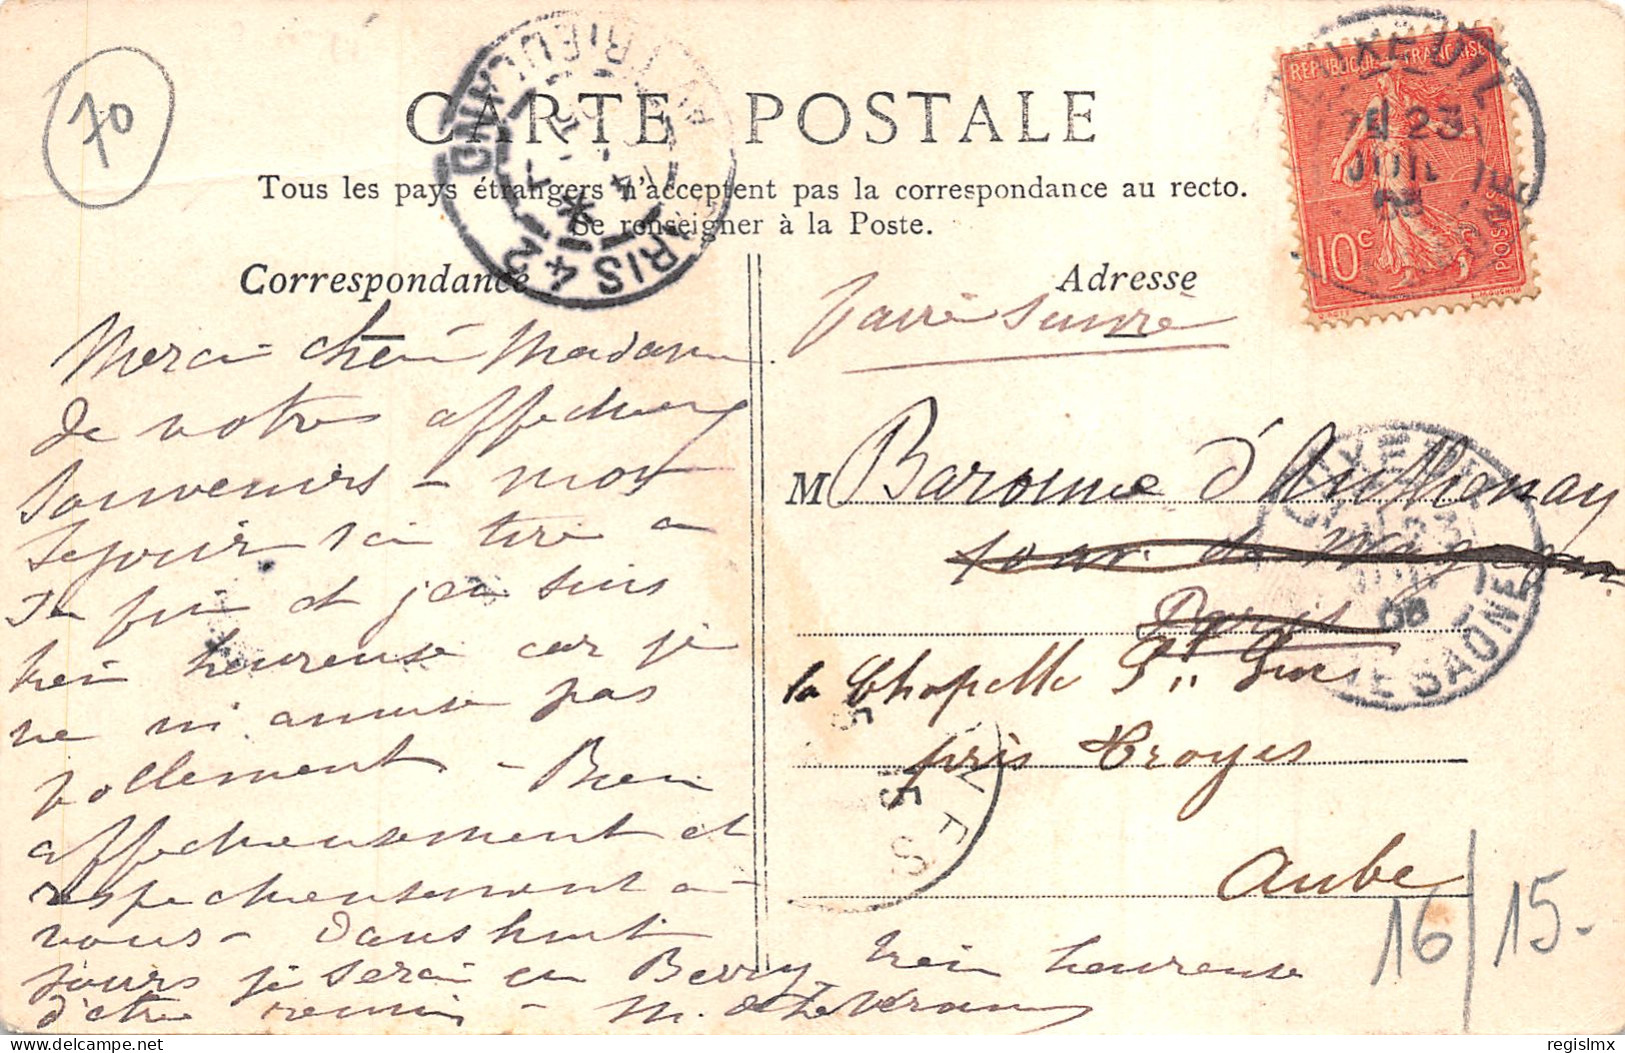 70
CARTE POSTALE
Tous les pays étrangers n'acceptent pas la correspondance au recto.
Se renseigner à la Poste.
Correspondance
Adresse
REPUBLIQUE FRANCAISE
10c
POSTES
LUXEUIL
7E 23
JUIL
PARIS 42
LUXEUIL
23
08
HTE SAONE
Faire suivre
Merci chère Madame
de votre affectueux
souvenirs - mon
séjour ici tire à
sa fin et j'en suis
bien heureuse car je
ne m'amuse pas
follement - Bien
affectueusement et
respectueusement à
vous - Dans huit
jours je serai en Berry, bien heureuse
d'être
M. de
M Baronne d'Authenay
Paris
la Chapelle St Luc
près Troyes
Aube
16/15.
delcampe.net
regislmx